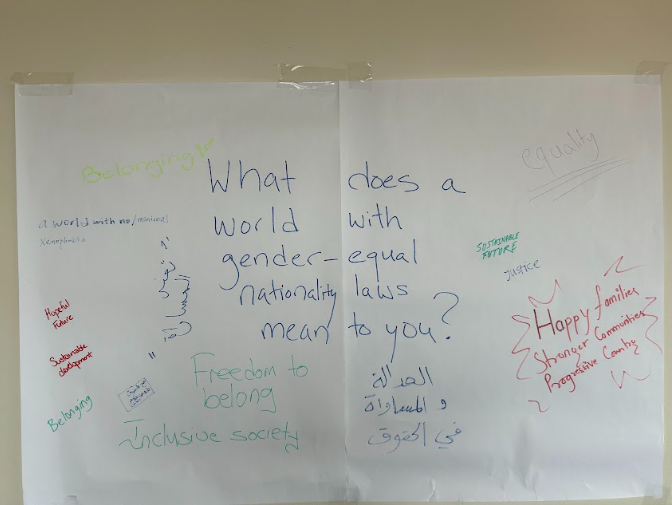 Belonging
What does a
world with
gender-equal
nationality laws
mean to you?
equality
a world with no/minimal
xenophobia
SUSTAINABLE
FUTURE
Justice
Hopeful
Future
Sustainable
development
Belonging
Happy families
Stronger Communities
Progressive Country
Freedom to
belong
Inclusive society
العدالة
و المساواة
في الحقوق